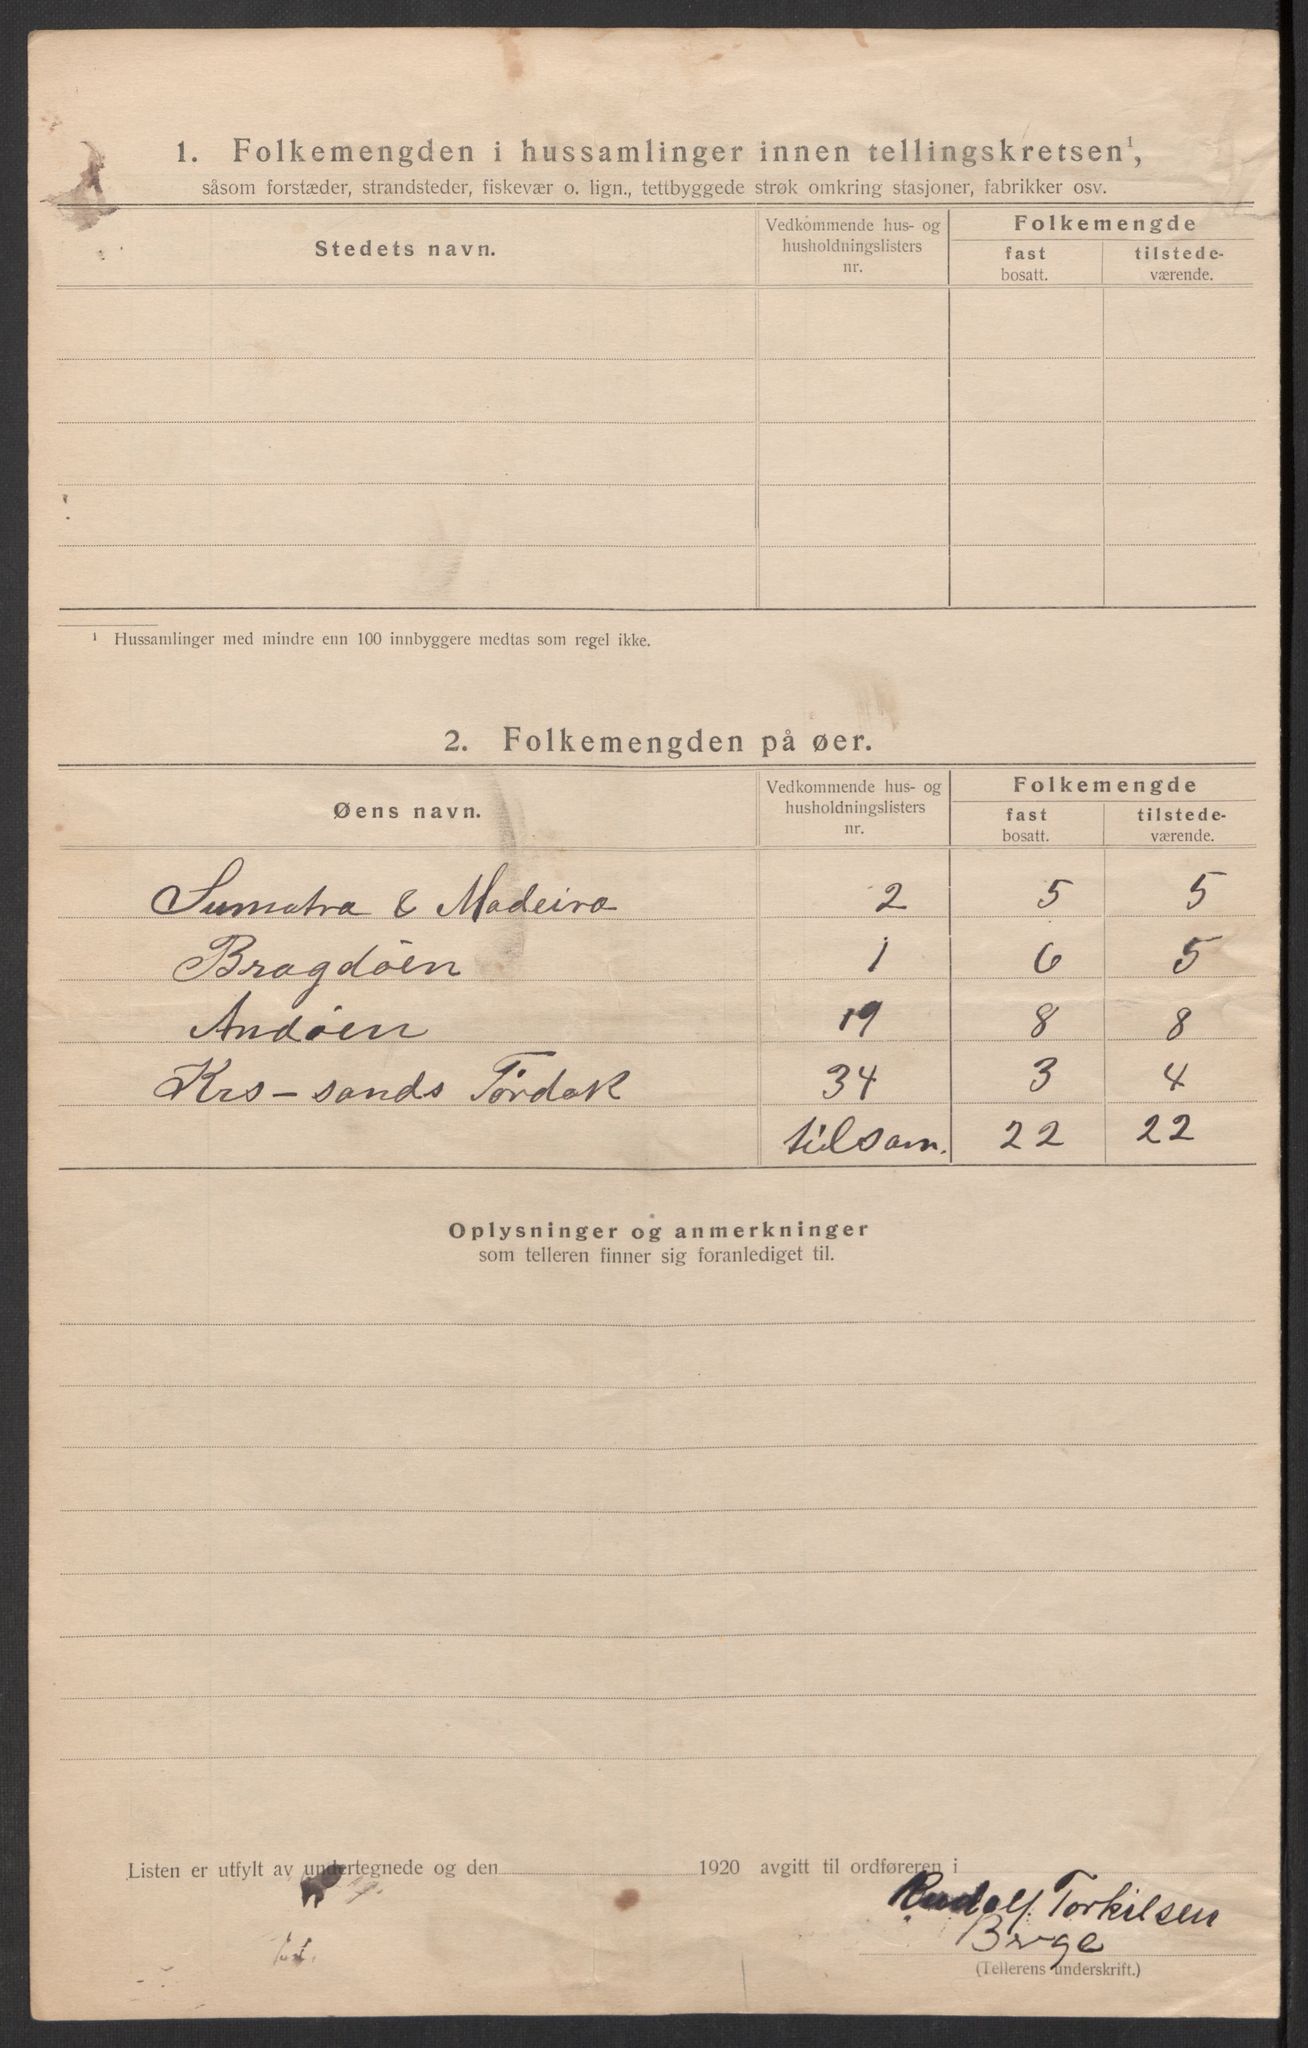 1. Folkemengden i hussamlinger innen tellingskretsen¹,
såsom forstæder, strandsteder, fiskevær o. lign., tettbyggede strøk omkring stasjoner, fabrikker osv.
Stedets navn.
Vedkommende hus- og
husholdningslisters
nr.
Folkemengde
fast
bosatt.
tilstede-
værende.
¹ Hussamlinger med mindre enn 100 innbyggere medtas som regel ikke.
2. Folkemengden på øer.
Øens navn.
Vedkommende hus- og
husholdningslisters
nr.
Folkemengde
fast
bosatt.
tilstede-
værende.
Sumatra & Madeira 2 5 5
Bragdöen 1 6 5
Andöen 19 8 8
Krs-sands Tördok 34 3 4
tilsam. 22 22
Oplysninger og anmerkninger
som telleren finner sig foranlediget til.
Listen er utfylt av undertegnede og den 1920 avgitt til ordføreren i
Rudolf Torkilsen
(Tellerens underskrift.)